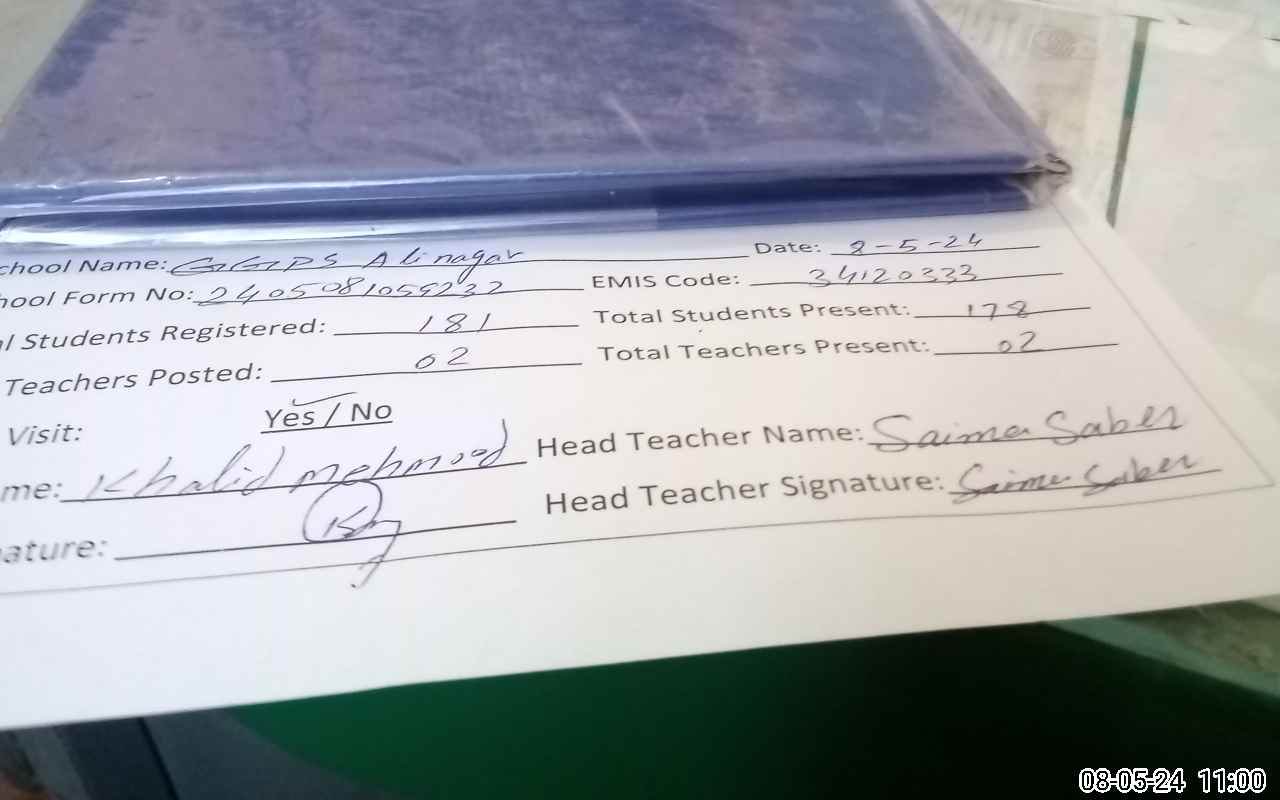 chool Name: GGPS Alinagar Date: 8-5-24
hool Form No: 2405081059232 EMIS Code: 34120333
l Students Registered: 181 Total Students Present: 178
Teachers Posted: 02 Total Teachers Present: 02
Visit: Yes / No
me: Khalid mehmood Head Teacher Name: Saima Saber
ature: Head Teacher Signature: Saima Saber
08-05-24 11:00